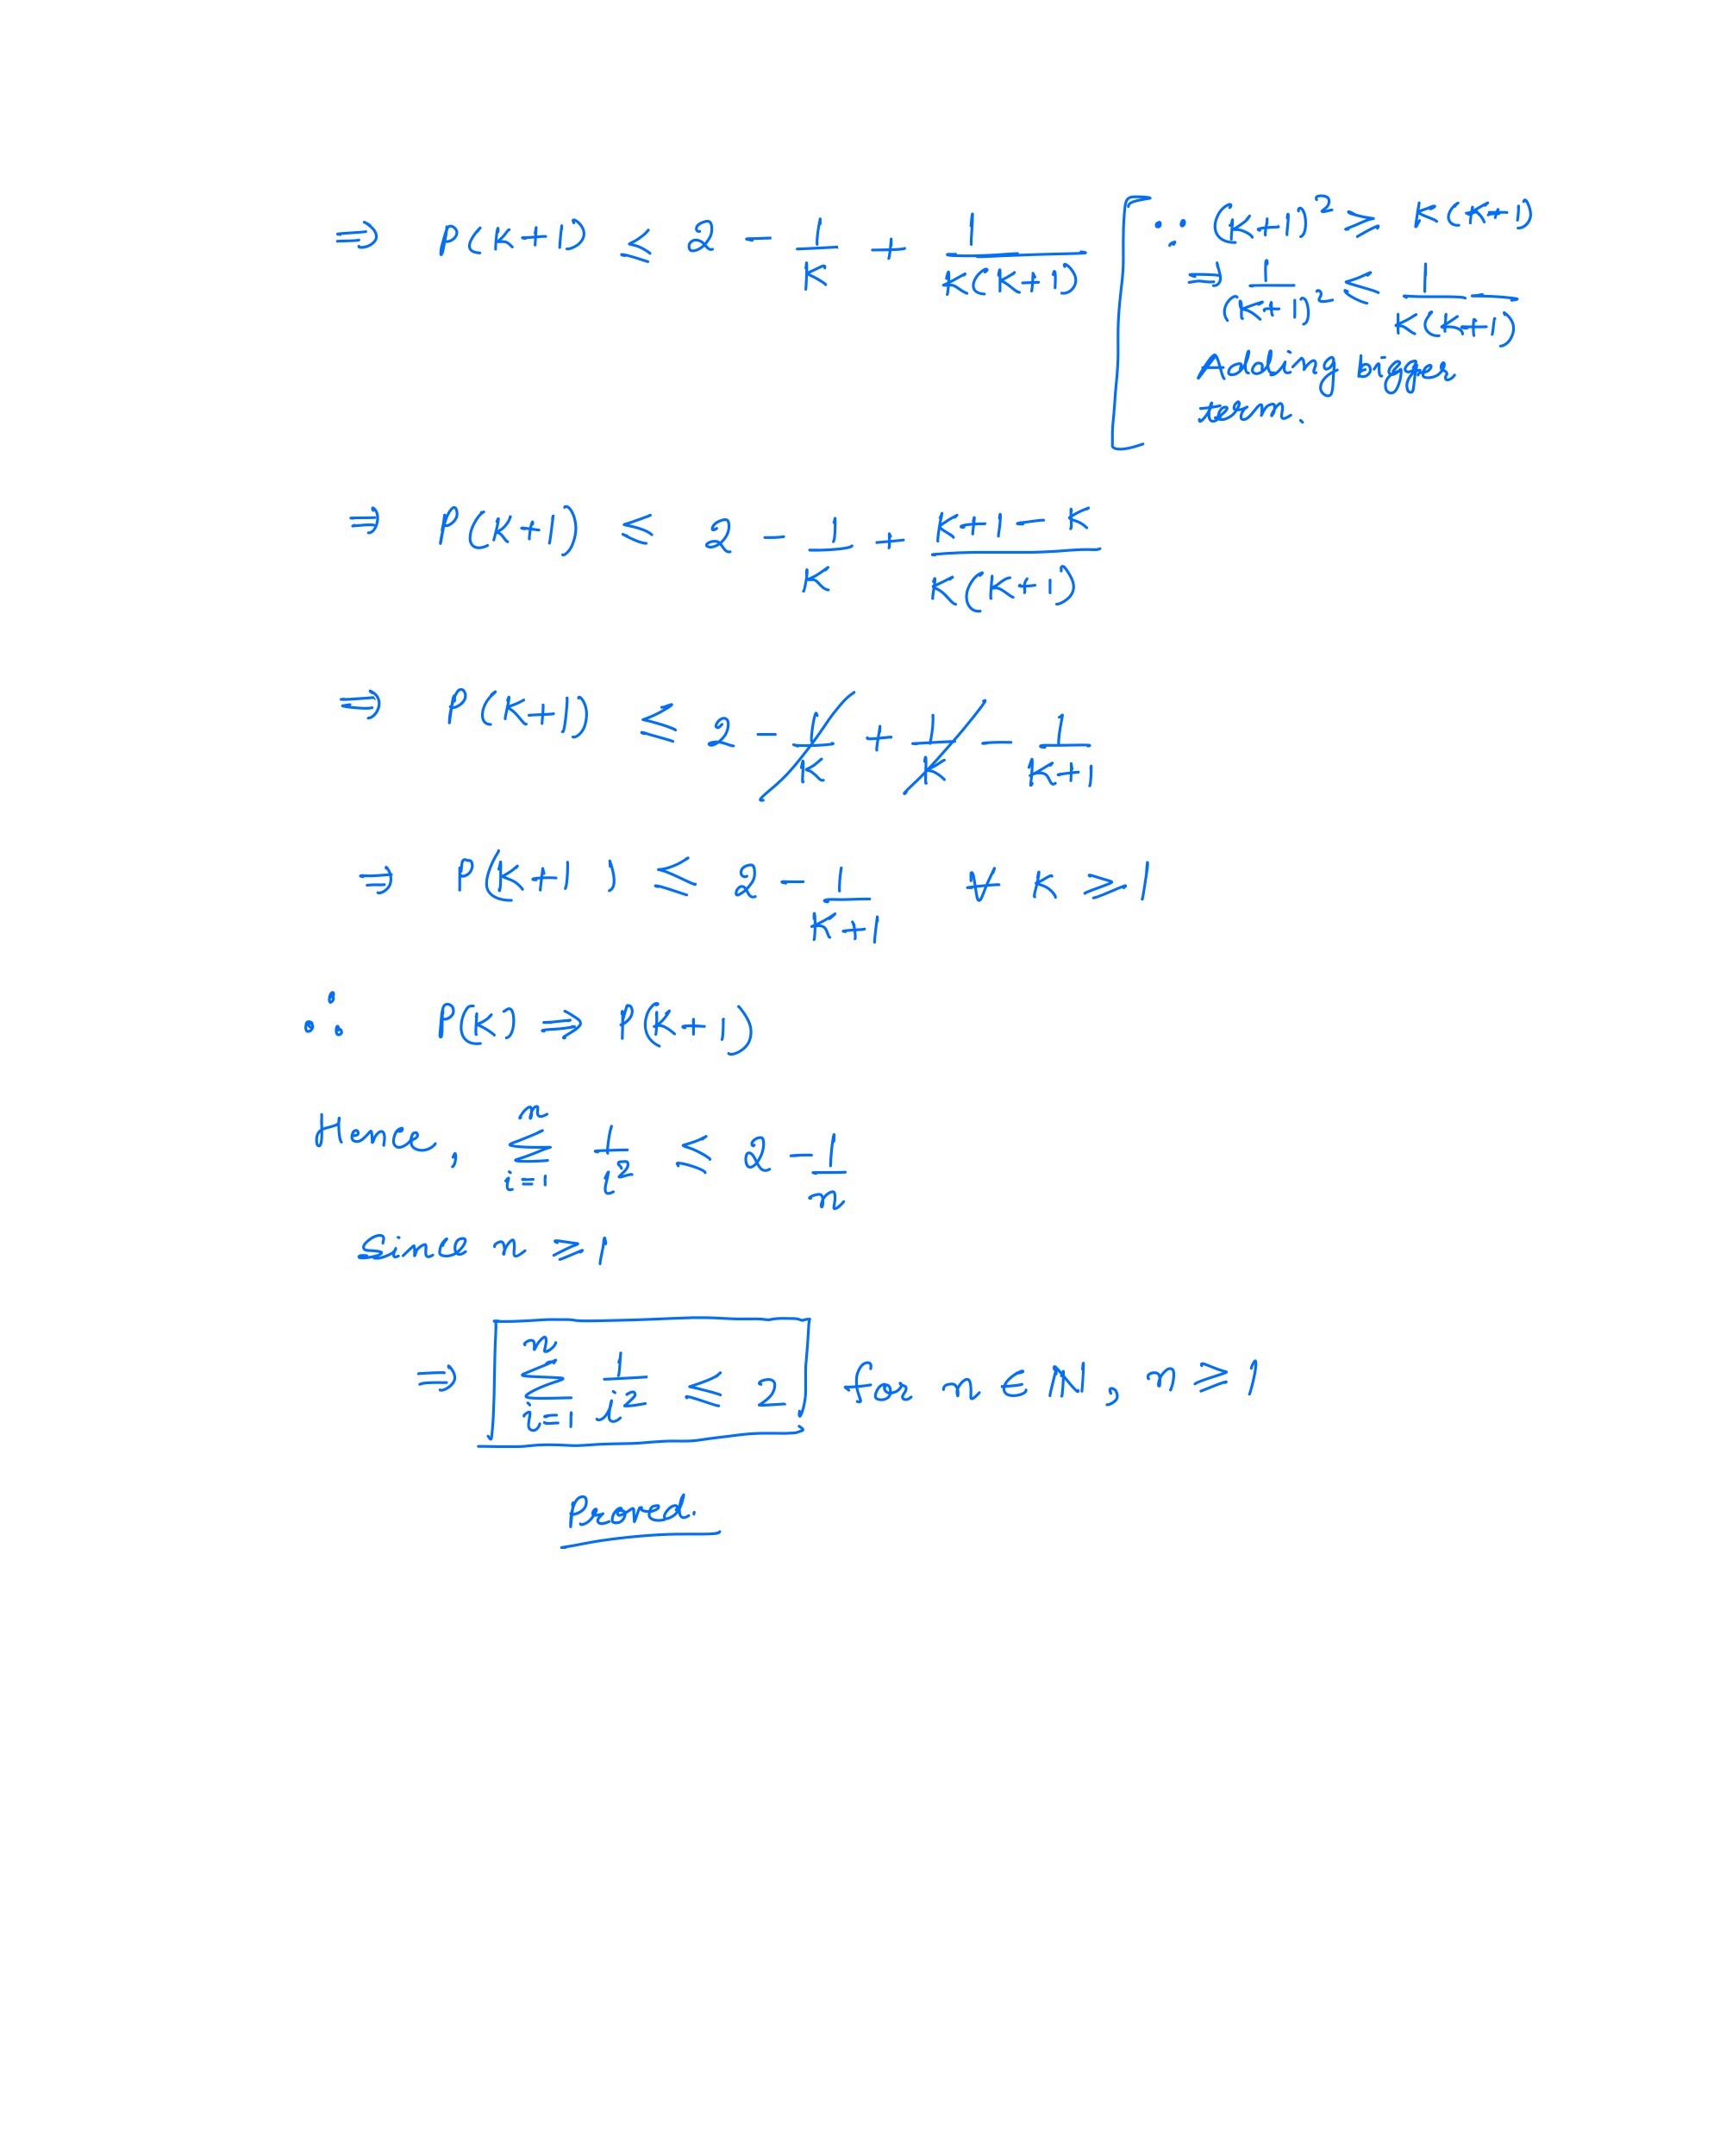 ⇒ P(K+1) ≤ 2 - 1/K + 1/(K(K+1)) [∵ (K+1)² ≥ K(K+1)
⇒ 1/(K+1)² ≤ 1/(K(K+1))
Adding bigger
term.
⇒ P(K+1) ≤ 2 - 1/K + (K+1-K)/(K(K+1))
⇒ P(K+1) ≤ 2 - 1/K + 1/K - 1/(K+1)
⇒ P(K+1) ≤ 2 - 1/(K+1) ∀ K ≥ 1
∴ P(K) ⇒ P(K+1)
Hence, ∑_{i=1}^{n} 1/i² ≤ 2 - 1/n
since n ≥ 1
⇒ ∑_{i=1}^{n} 1/i² ≤ 2 for n ∈ ℕ, n ≥ 1
Proved.